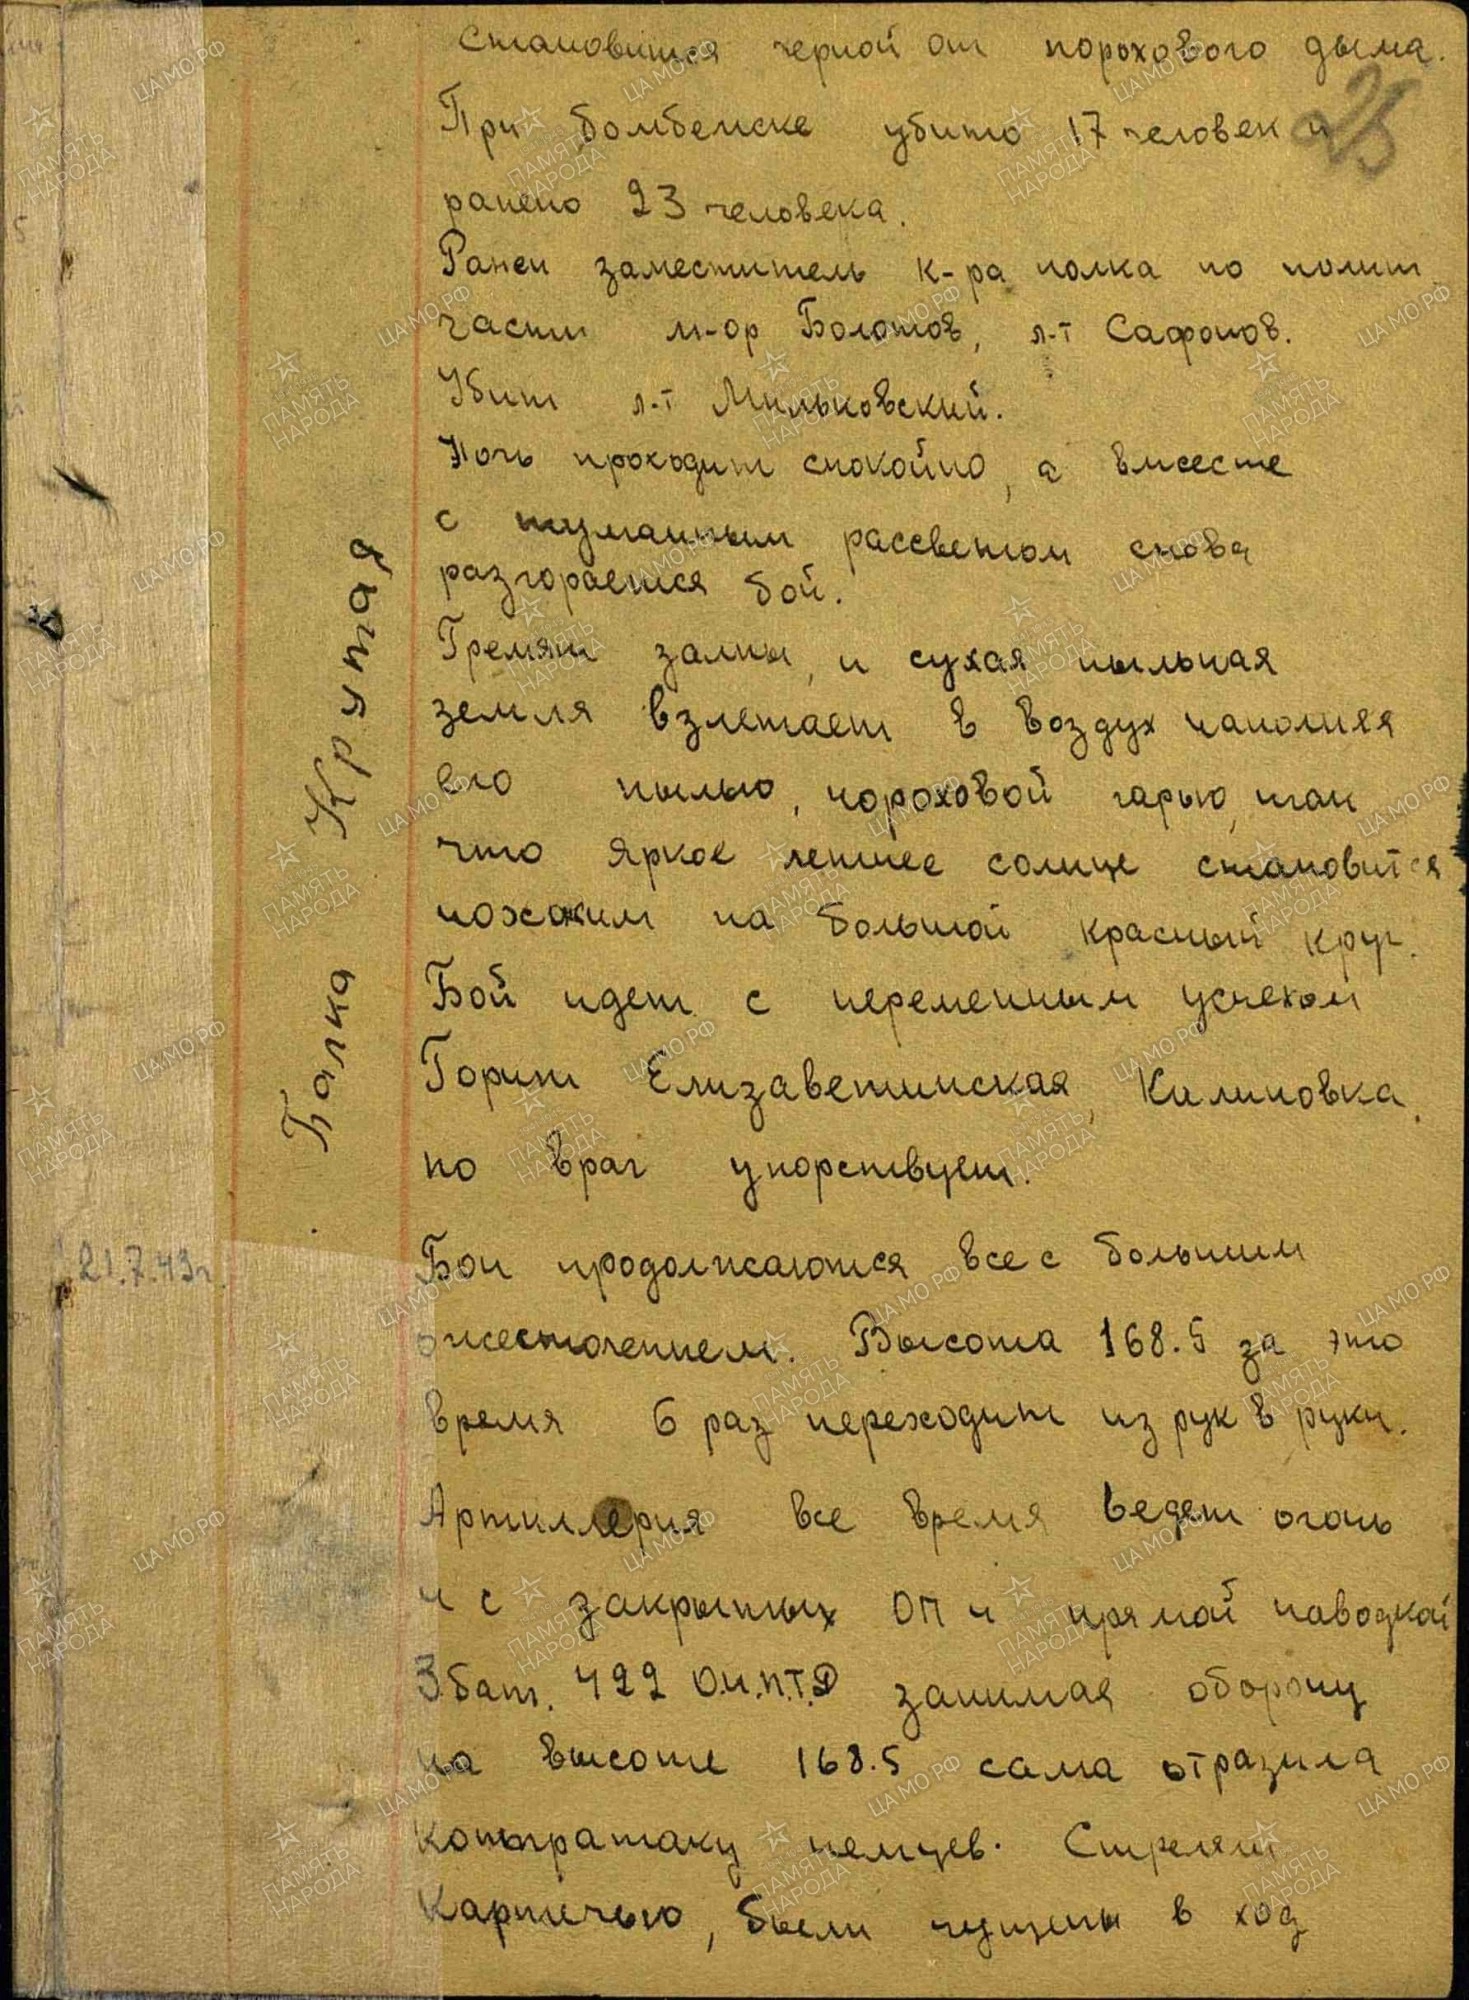 становится черной от порохового дыма.
25
При бомбежке убито 17 человек и
ранено 23 человека.
Ранен заместитель к-ра полка по полит
части м-ор Болотов, л-т Сафонов.
Убит л-т Мильковский.
Ночь проходит спокойно, а вместе
с туманным рассветом снова
разгорается бой.
Гремят залпы, и сухая пыльная
земля взлетает в воздух наполняя
его пылью, пороховой гарью, так
что яркое летнее солнце становится
похожим на большой красный круг.
Бой идет с переменным успехом
Горит Елизаветинская, Калиновка,
но враг упорствует.
Балка Крутая
21.7.43г.
Бои продолжаются все с большим
ожесточением. Высота 168.5 за это
время 6 раз переходит из рук в руки.
Артиллерия все время ведет огонь
и с закрытых ОП и прямой наводкой
3 бат. 422 О.И.П.Т.Д занимая оборону
на высоте 168.5 сама отразила
контратаку немцев. Стреляли
картечью, были пущены в ход
ПАМЯТЬ НАРОДА
ЦАМО.РФ